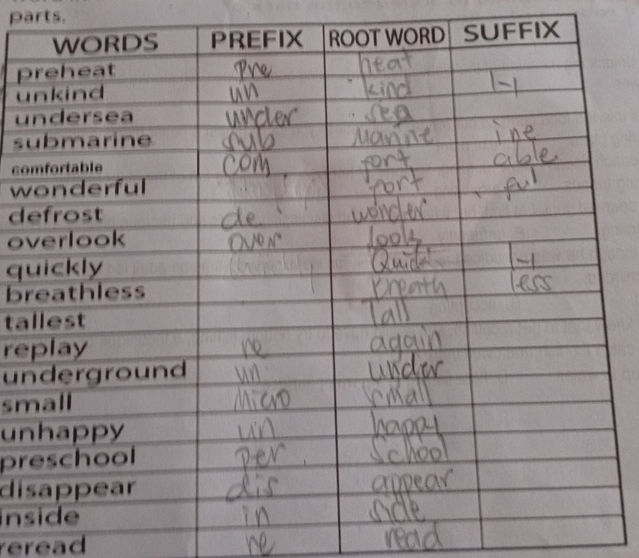 parts.
WORDS PREFIX ROOT WORD SUFFIX
preheat pre heat
unkind un kind ly
undersea under sea
submarine sub Marine ine
comfortable com fort able
wonderful fort ful
defrost de wonder
overlook over look
quickly Quick ly
breathless breath less
tallest Tall
replay re again
underground un under
small Micro small
unhappy un happy
preschool per school
disappear dis appear
inside in side
reread re read